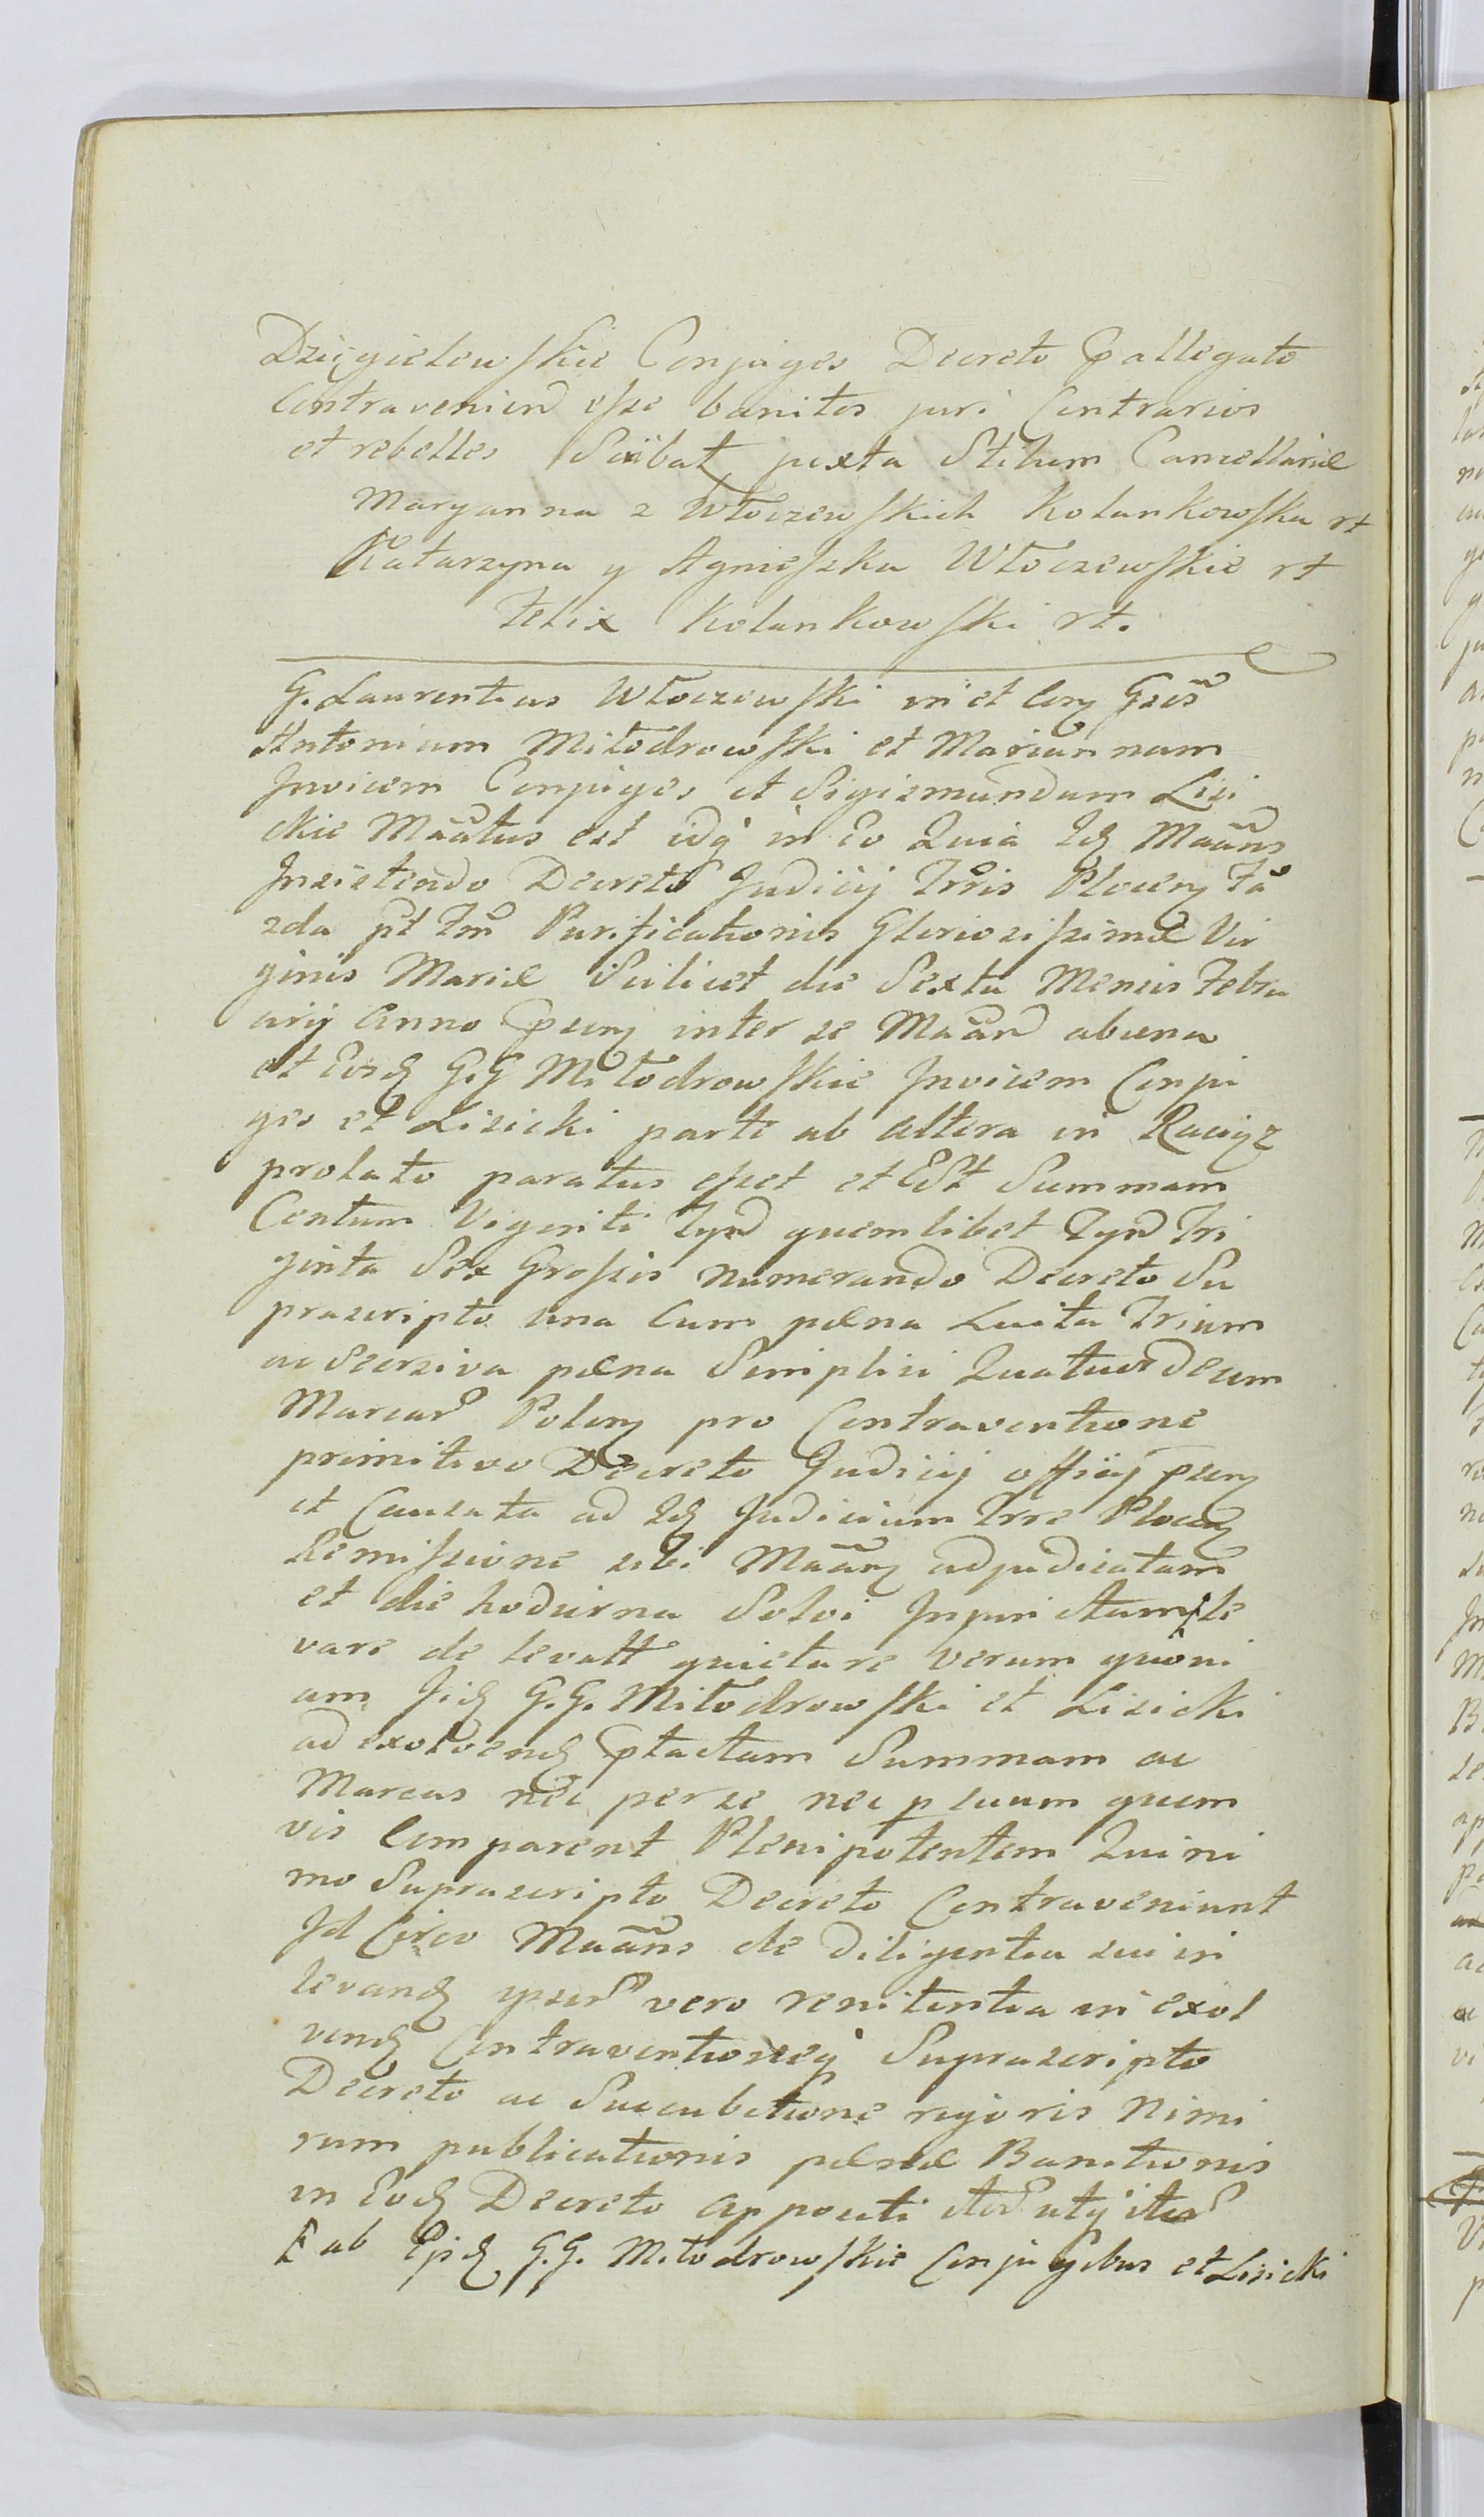 Dzięgielewskie Conjuges Decreto Pallegato
Contraveniend esse banitos juri Contrarios
et rebelles juxta Stilum Cancellariæ
Maryanna z Włoczewskich Kolankowska rt
Katarzyna y Agnieszka Włoczewskie rt
Felix Kolankowski rt.
G. Laurentius Włoczewski in et Gsos
Antonium Miłodrowski et Mariannam
Invicem Conjuges et Sigismundum Lisi
ckie Maatus est idq in Eo Quia Id Maans
Inzistendo Decreto Judicij Trris Plocen Fã
zda pt Tm Purificationis Gloriosissimæ Vir
ginis Mariæ Scilicet die Sexta Mensis Febru
arij Anno psen inter se Maan abuna
et Eosd G.G Miłodrowskie Invicem Conju
ges et Lisicki parte ab altera in Raciąz
prolato paratus esset et Est Summam
Centum Viginti Tyn quemlibet Tyn Tri
ginta Sex Grossis numerando Decreto Su
prascripto una Cum pæna Luita Trium
ac Seorziva pæna Simplici Quatuordecim
Marcar Polon pro Contraventione
primitivo Decreto Judicij officij psen
et Causata ad Id Judicium Trre Plocen
Remissione sibi Maan adjudicatam
et die hodierna Solvi Injunctam le
vare de levatt quietare verum quoni
am Iid G.G. Miłodrowski et Lisicki
ad exolvend ptactam Summam ac
Marcas nec per se nec p suum quem
vis Comparent Plenipotentem Quini
mo Suprascripto Decreto Contraveniunt
Id Circo Maans de Diligentia sui in
levand ypsor vero renitentia in exol
vend Contraventioneq Suprascripto
Decreto ac Succubitione rigoris Nimi
rum publicationis pænæ Banitionis
in Eod Decreto appositi
ab Ejsd G.G. Miłodrowskie Conjugibus et Lisicki